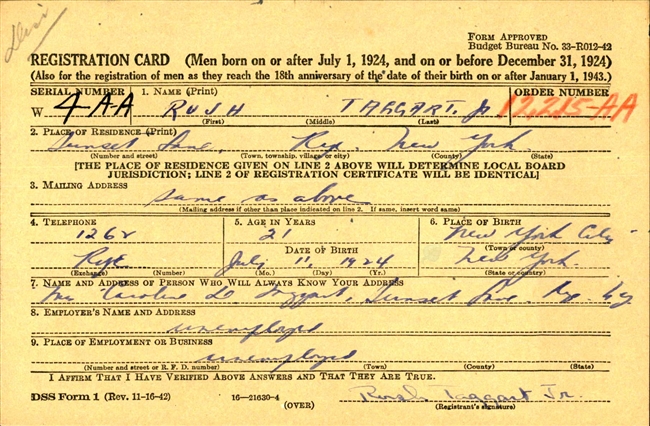 FORM APPROVED
Budget Bureau No. 33-R012-42
REGISTRATION CARD (Men born on or after July 1, 1924, and on or before December 31, 1924)
(Also for the registration of men as they reach the 18th anniversary of the date of their birth on or after January 1, 1943.)
SERIAL NUMBER 1. NAME (Print) ORDER NUMBER
W 4-A-A RUSH TAGGART. Jr 12,215-AA
(First) (Middle) (Last)
2. PLACE OF RESIDENCE (Print)
Sunset Lane, Rye. New York
(Number and street) (Town, township, village, or city) (County) (State)
[THE PLACE OF RESIDENCE GIVEN ON LINE 2 ABOVE WILL DETERMINE LOCAL BOARD
JURISDICTION; LINE 2 OF REGISTRATION CERTIFICATE WILL BE IDENTICAL]
3. MAILING ADDRESS
same as above
(Mailing address if other than place indicated on line 2. If same, insert word same)
4. TELEPHONE 5. AGE IN YEARS 6. PLACE OF BIRTH
1262 21 New York City
DATE OF BIRTH (Town or county)
Rye July 11 1924 New York.
(Exchange) (Number) (Mo.) (Day) (Yr.) (State or country)
7. NAME AND ADDRESS OF PERSON WHO WILL ALWAYS KNOW YOUR ADDRESS
Caroline Taggart, Sunset Lane, Rye. N.Y.
8. EMPLOYER'S NAME AND ADDRESS
unemployed
9. PLACE OF EMPLOYMENT OR BUSINESS
unemployed
(Number and street or R. F. D. number) (Town) (County) (State)
I AFFIRM THAT I HAVE VERIFIED ABOVE ANSWERS AND THAT THEY ARE TRUE.
DSS Form 1 (Rev. 11-16-42) 16—21630-4 Rush Taggart Jr.
(OVER) (Registrant's signature)